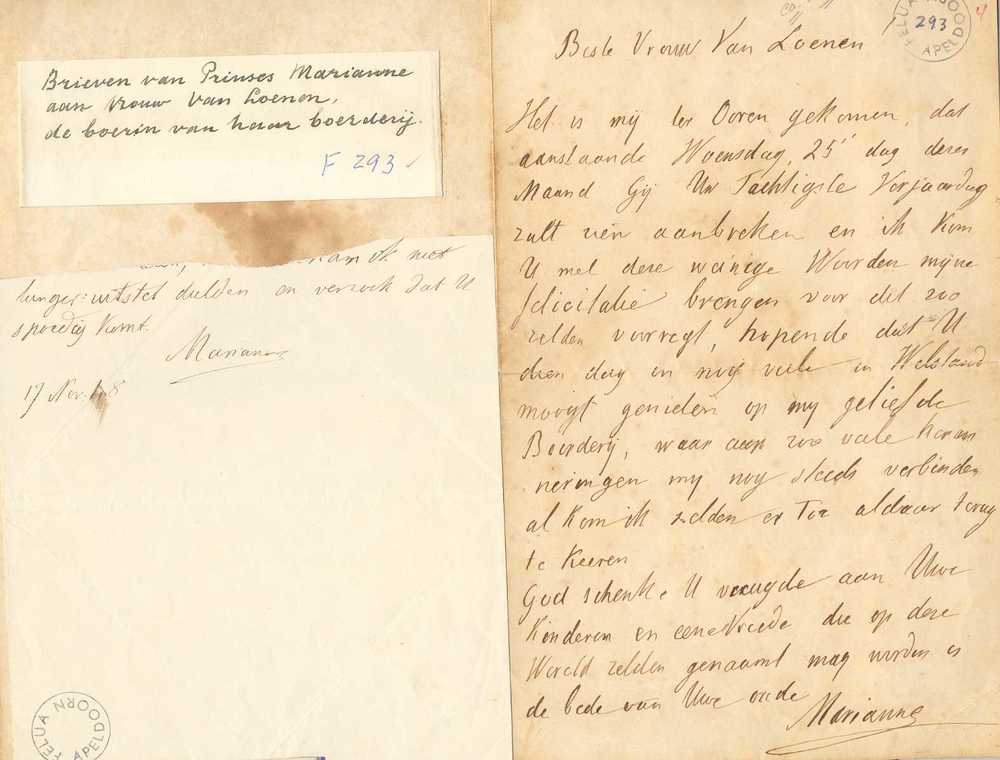 Brieven van Prinses Marianne
aan Vrouw Van Loenen,
de boerin van haar boerderij.
F 293
kan ik niet
langer uitstel dulden en verzoek dat U
spoedig komt.
Marianne
17 Nov.
FELUA APELDOORN
293
4
Beste Vrouw Van Loenen
Het is mij ter Ooren gekomen, dat
aanstaande Woensdag, 25 dag dezer
Maand Gij Uw Tachtigste Verjaardag
zult zien aanbreken en ik kom
U met deze weinige Woorden mijne
felicitatie brengen voor dit zoo
zelden voorregt, hopende dat U
dien dag en nog vele in Welstand
moogt genieten op mij geliefde
Boerderij, waar aan zoo vele herin
neringen mij nog steeds verbinden
al kom ik zelden er toe aldaar terug
te keeren
God schenke U vreugde aan Uwe
Kinderen en eene Vrede die op deze
Wereld zelden genaamt mag worden is
de bede van Uwe oude
Marianne
FELUA APELDOORN